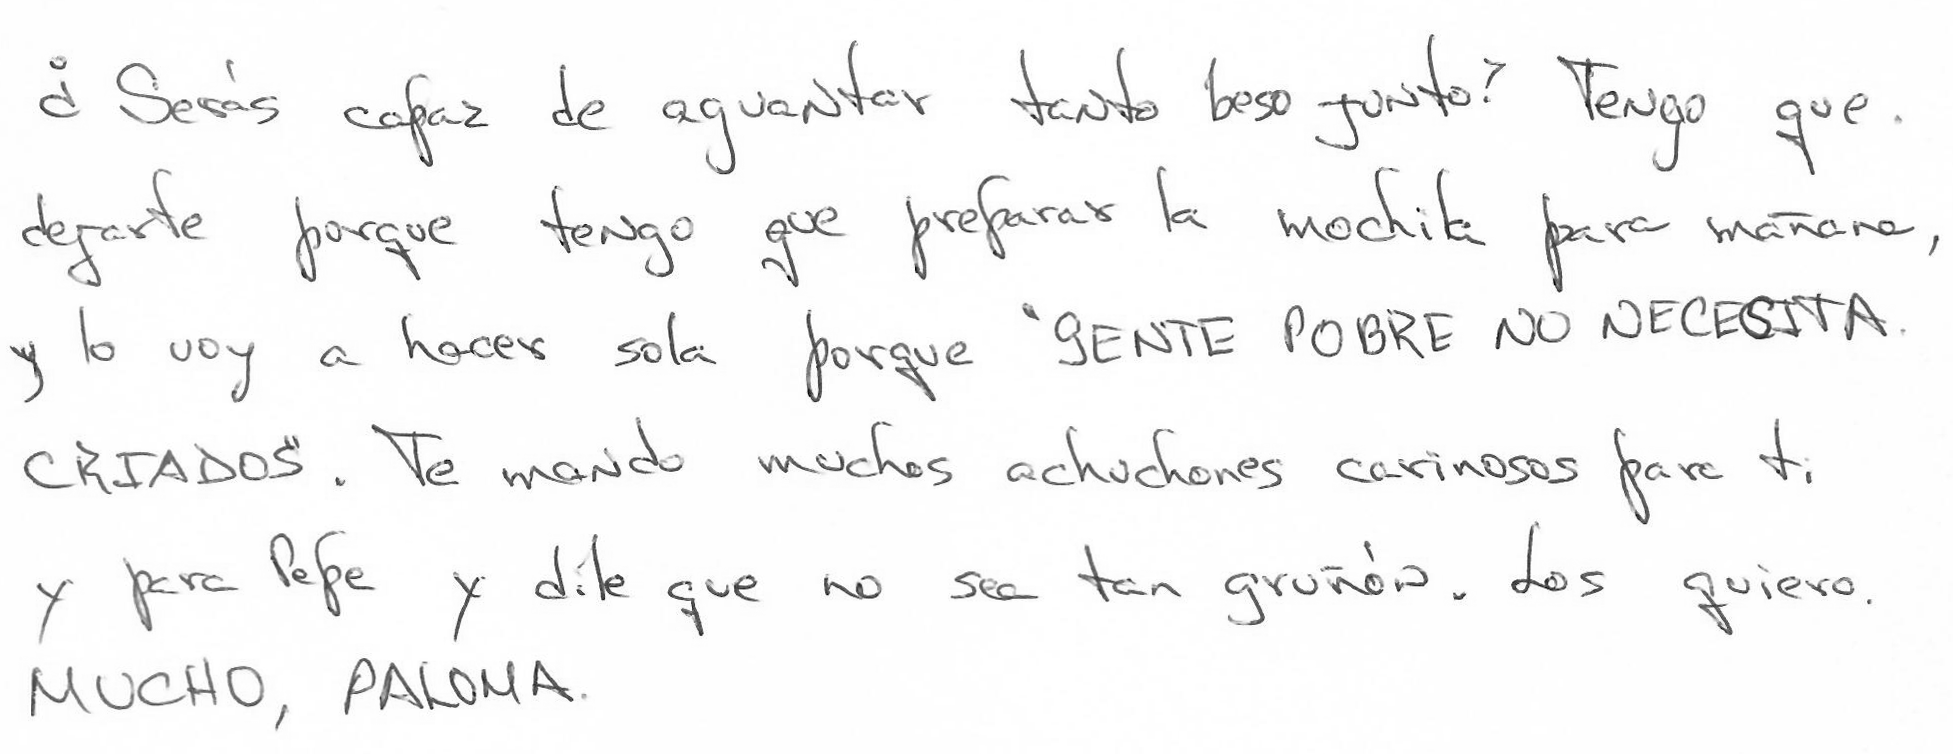 ¿Serás capaz de aguantar tanto beso junto? Tengo que.
dejarte porque tengo que preparar la mochila para mañana,
y lo voy a hacer sola porque "GENTE POBRE NO NECESITA.
CRIADOS". Te mando muchos achuchones carinosos para ti
y para Pepe y dile que no sea tan gruñón. Los quiero.
MUCHO, PALOMA.